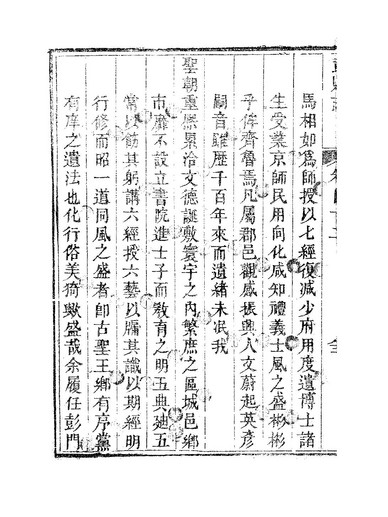 馬相如爲師授以七經復減少府用度遣博士諸
生受業京師民用向化咸知禮義士風之盛彬彬
乎侔齊魯焉凡屬郡邑觀感振興人文蔚起英彥
嗣音雖歷千百年來而遺緒未泯我
聖朝重熙累洽文德誕敷寰宇之內繁庶之區城邑鄉
市靡不設立書院進士子而敎育之明五典廸五
常以飭其躬講六經授六藝以牖其識以期經明
行修而昭一道同風之盛者卽古聖王鄉有序黨
有庠之遺法也化行俗美猗歟盛哉余履任彭門